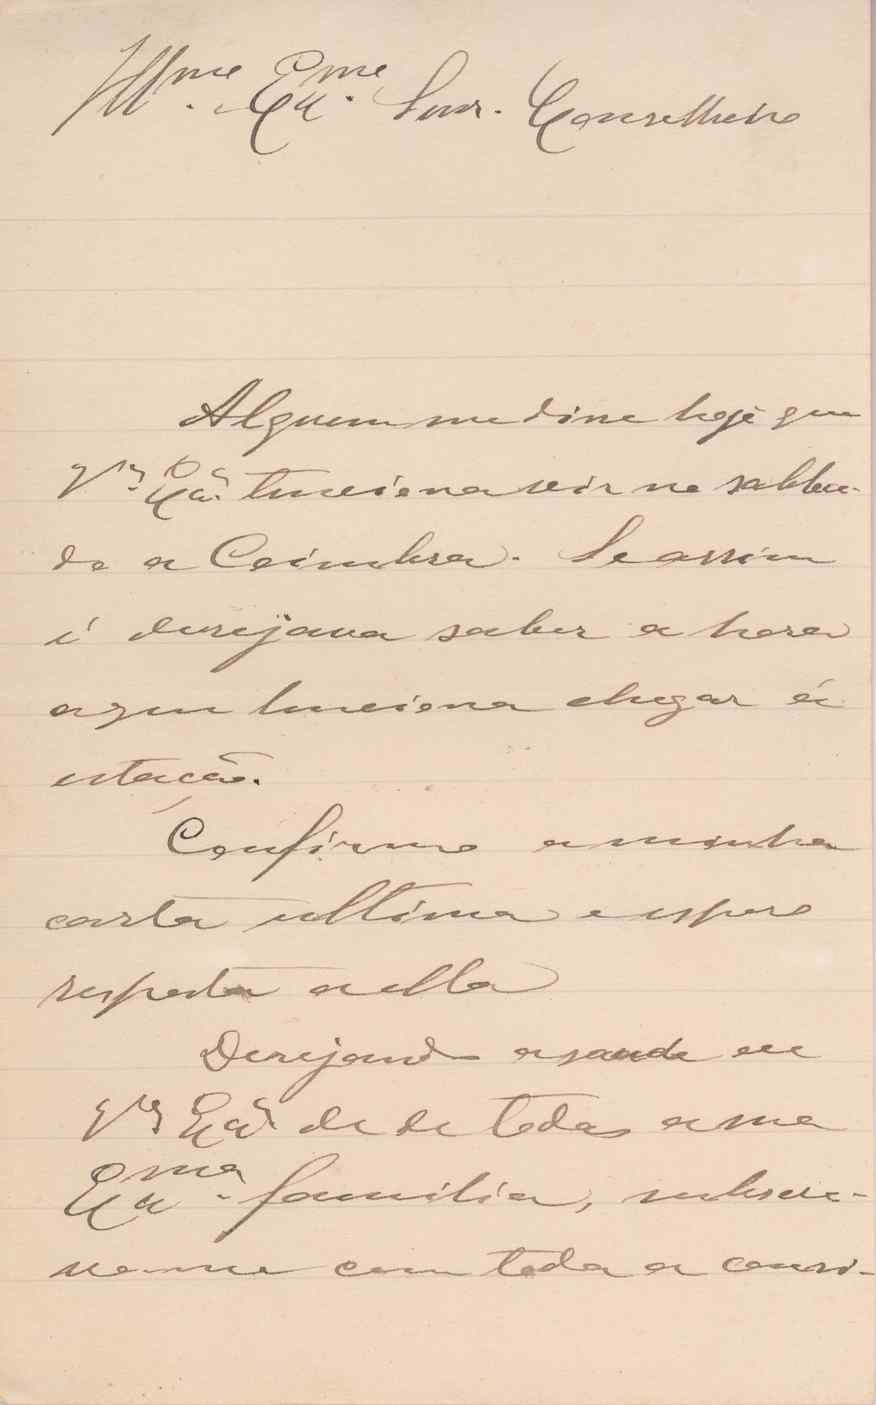 Illmo. Exmo. Snr. Conselheiro
Alguem me disse hoje que
V. Exa. tenciona vir no sabba-
do a Coimbra. Se assim
é desejava saber a hora
a que tenciona chegar á
estação.
Confirmo a minha
carta ultima e espero
resposta a ella
Desejando a saude de
V. Exa. e de toda a sua
Exma. familia, subscre-
vo-me com toda a consi-